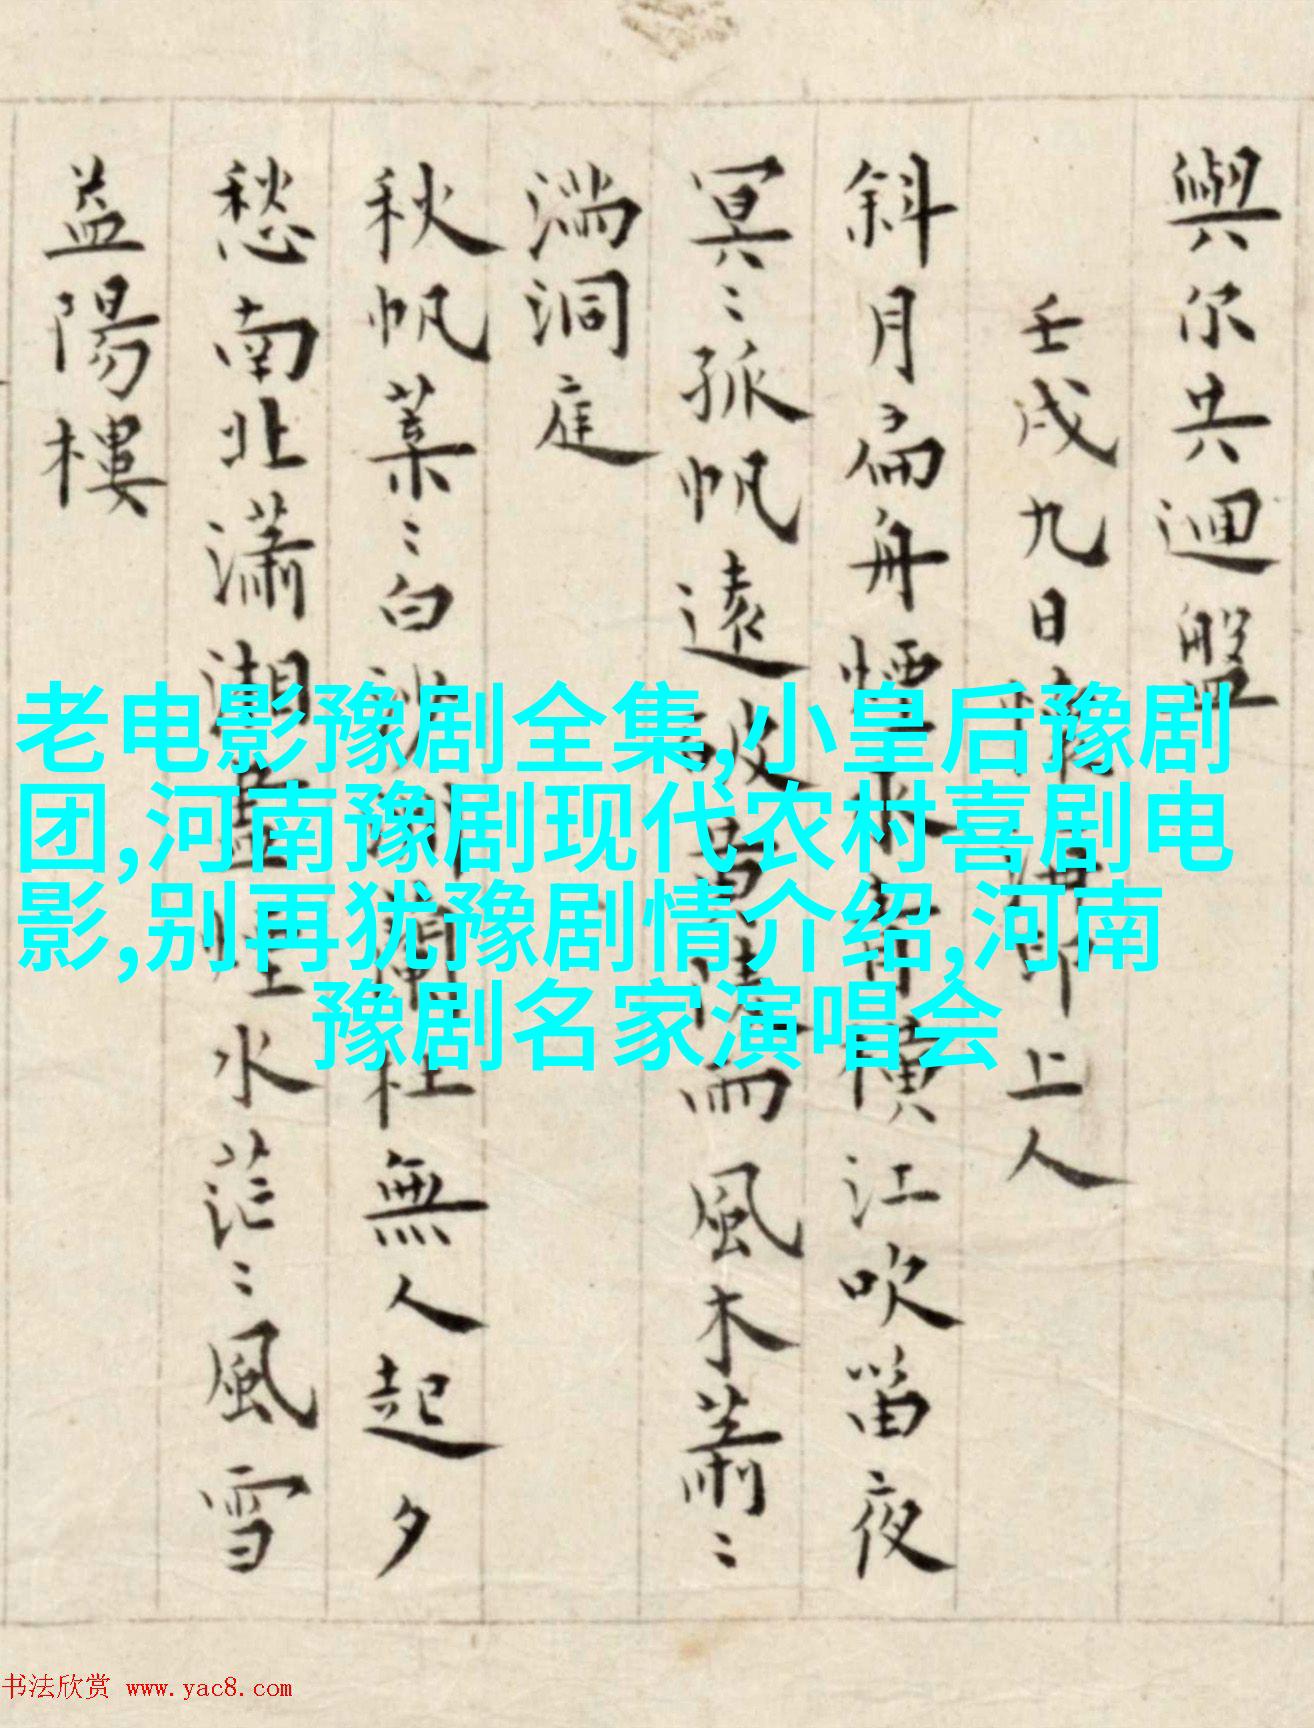 與尔共迴盤
壬戌九日 上人
斜月扁舟煙水 橫江吹笛夜
冥〻孤帆遠 風木蕭〻
湍洞庭
秋帆葉〻白沙 杜無人起夕
愁南北瀟湖 煙水茫〻風雪
益陽樓
老电影豫剧全集,小皇后豫剧
团,河南豫剧现代农村喜剧电
影,别再犹豫剧情介绍,河南
豫剧名家演唱会
书法欣赏 www.yac8.com